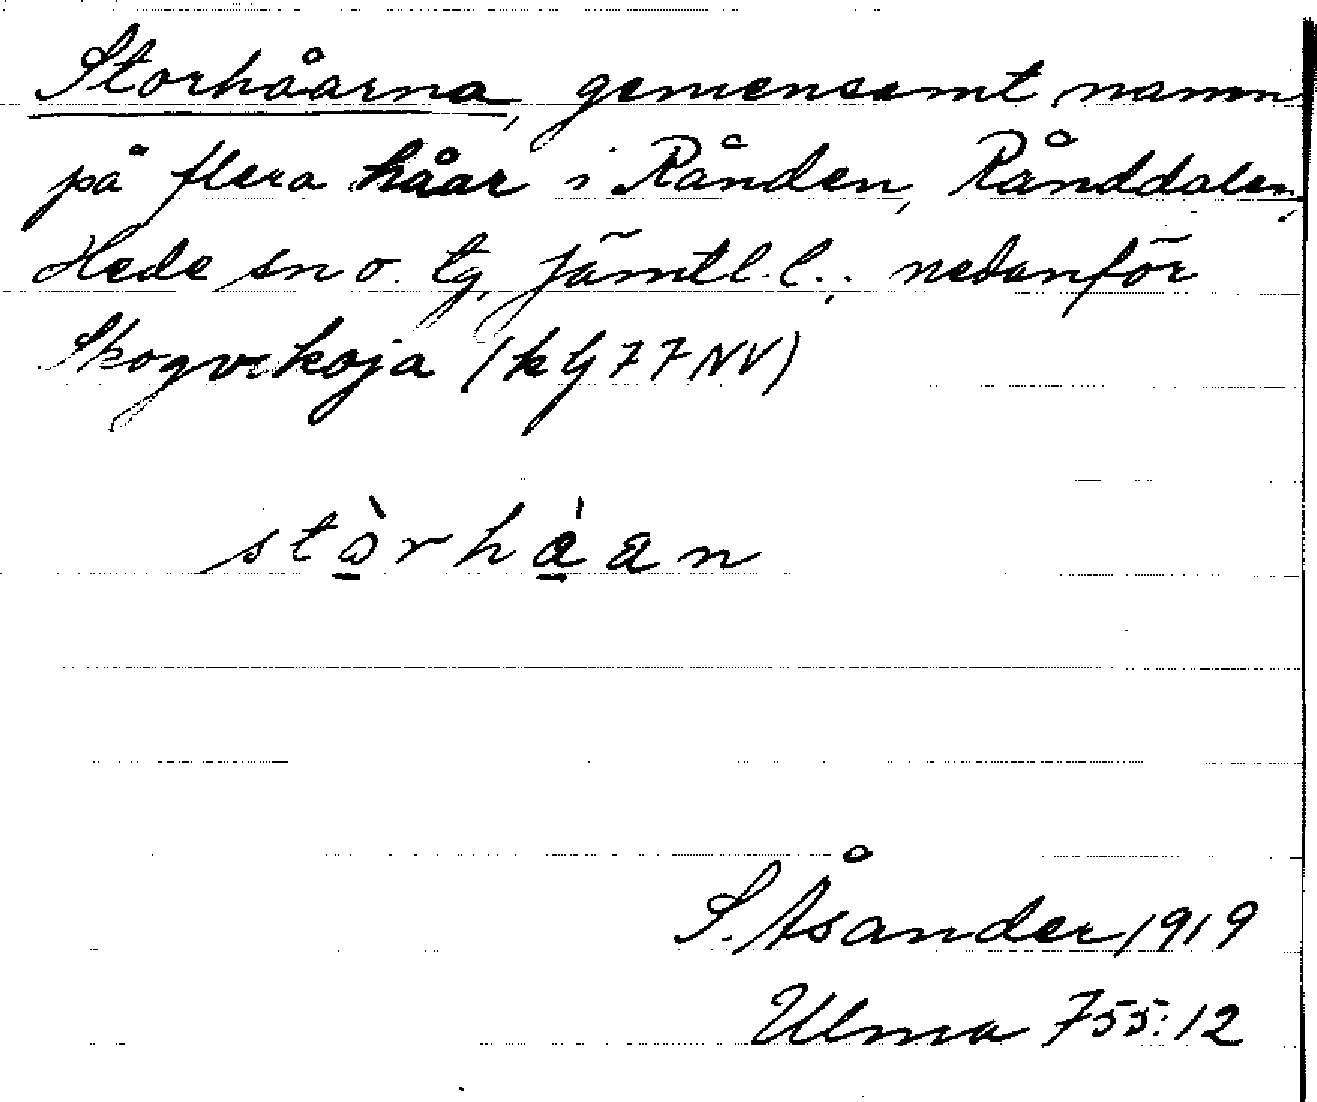 Storhåarna, gemensamt namn
på flera håar i Rånden, Rånddalen,
Hede sn o. tg, Jämtl. l.; nedanför
Skogvikoja (kG 77 NV)
stò̱rhà̱an
S. Åsander 1919
Ulma 755:12